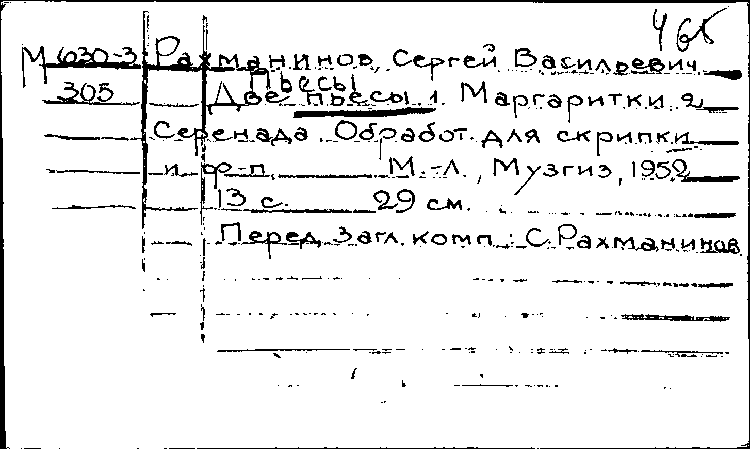 465
М 630-3 Рахманинов, Сергей Васильевич
Пьесы
305 Две пьесы 1. Маргаритки 2
Серенада. Обработ. для скрипки
и ф-п. М.-Л., Музгиз, 1952
13 с. 29 см.
Перед загл. комп.: С. Рахманинов